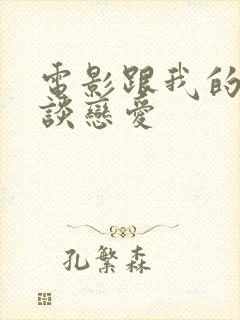 電影跟我的
談戀愛
孔繁森